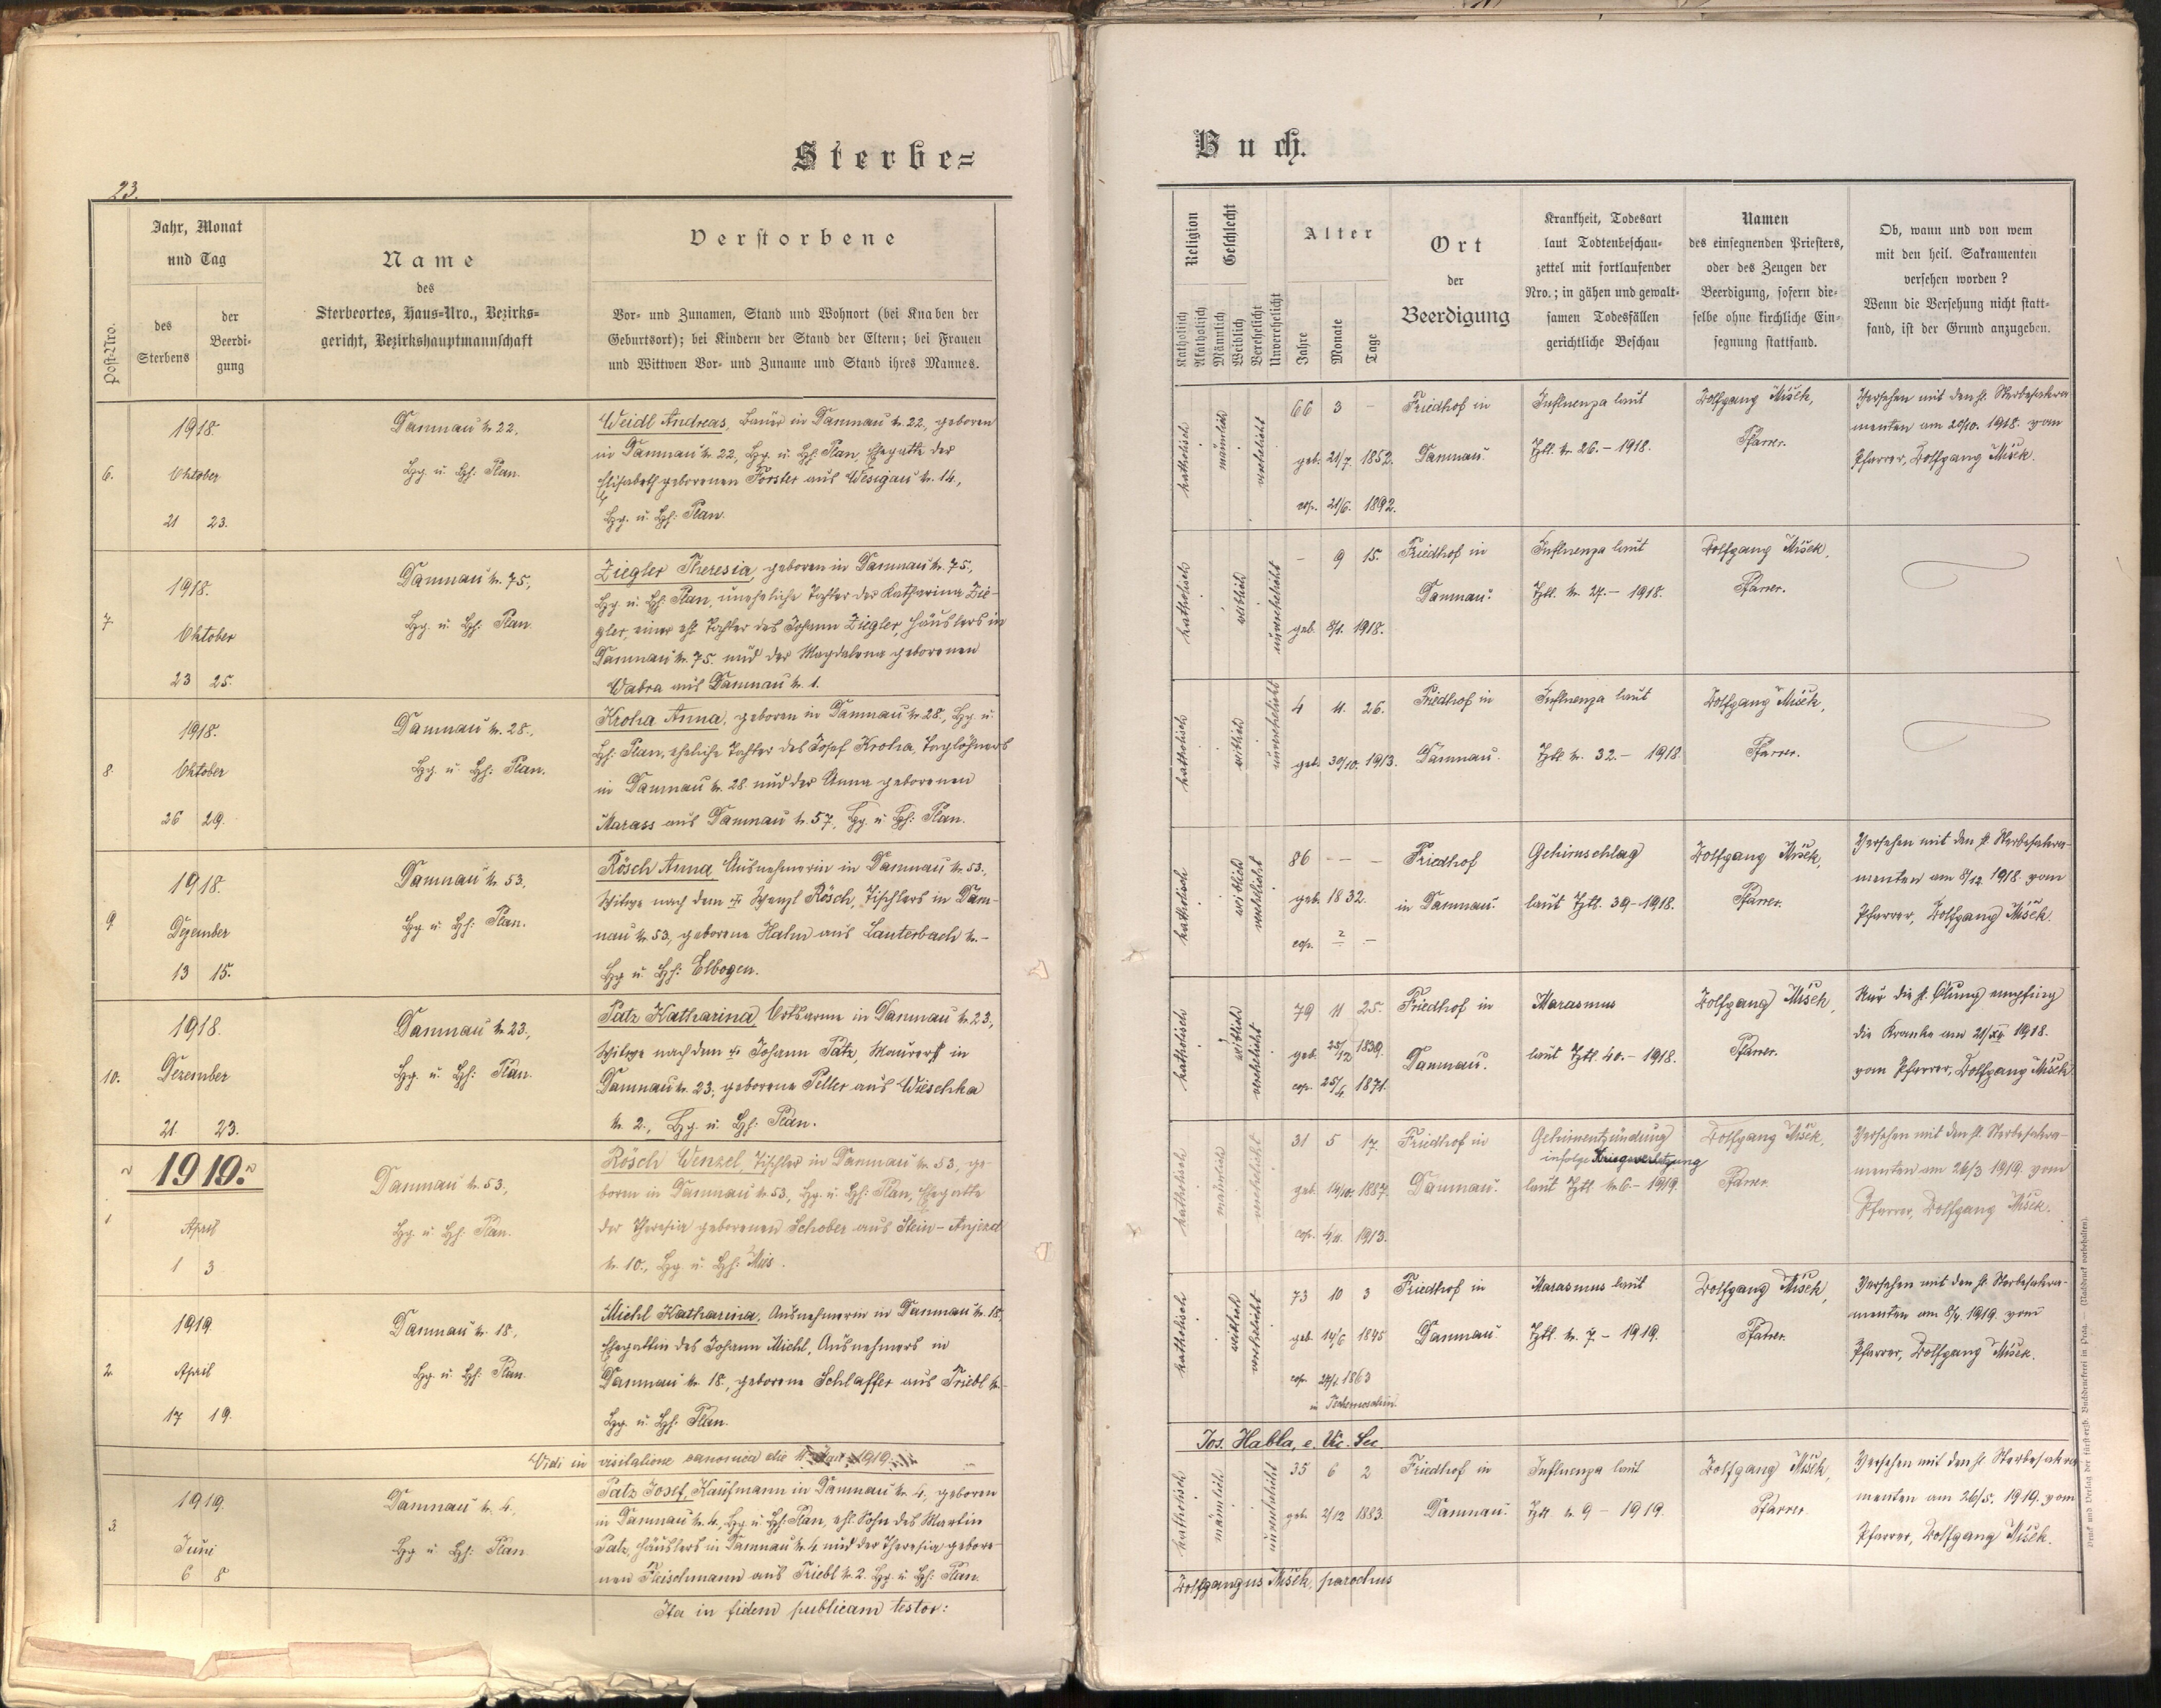 Sterbe=
23.
Jahr, Monat
und Tag
des
Sterbens
der
Beerdi-
gung
Post-Nro.
Name
des
Sterbeortes, Haus=Nro., Bezirks=
gericht, Bezirkshauptmannschaft
Verstorbene
Vor- und Zunamen, Stand und Wohnort (bei Knaben der
Geburtsort); bei Kindern der Stand der Eltern; bei Frauen
und Wittwen Vor- und Zuname und Stand ihres Mannes.
6.
1918.
Oktober
21 23.
Damnau N. 22,
Bg. u. Bh: Plan.
Weidl Andreas, Bauer in Damnau N. 22, geboren
in Damnau N. 22, Bg. u. Bh: Plan, Ehegatte der
Elisabeth geborenen Forster aus Wesigau N. 14,
Bg. u. Bh: Plan.
7.
1918.
Oktober
23 25.
Damnau N. 75,
Bg. u. Bh: Plan.
Ziegler Theresia, geboren in Damnau N. 75,
Bg. u. Bh: Plan, uneheliche Tochter der Katharina Zie-
gler, einer eh. Tochter des Johann Ziegler, Häuslers in
Damnau N. 75. und der Magdalena geborenen
Wabra aus Damnau N. 1.
8.
1918.
Oktober
26 29.
Damnau N. 28.,
Bg. u. Bh: Plan.
Kroha Anna, geboren in Damnau N. 28., Bg. u.
Bh: Plan, eheliche Tochter des Josef Kroha, Taglöhners
in Damnau N. 28 und der Anna geborenen
Marass aus Damnau N. 57, Bg. u. Bh: Plan.
9.
1918.
Dezember
13 15.
Damnau N. 53,
Bg. u. Bh: Plan.
Rösch Anna, Ausnehmerin in Damnau N. 53.,
Witwe nach dem † Wenzl Rösch, Tischlers in Dam-
nau N. 53, geborene Hahn aus Lauterbach N. -
Bg. u. Bh: Elbogen.
10.
1918.
Dezember
21. 23.
Damnau N. 23,
Bg. u. Bh: Plan.
Patz Katharina, Ortsarme in Damnau N. 23,
Witwe nach dem † Johann Patz, Maurers in
Damnau N. 23, geborene Peller aus Wieschka
N. 2., Bg. u. Bh: Plan.
1919.
1
April
1 3
Damnau N. 53.,
Bg. u. Bh: Plan.
Rösch Wenzel, Tischler in Damnau N. 53, ge-
boren in Damnau N. 53., Bg. u. Bh: Plan, Ehegatte
der Theresia geborenen Schober aus Stein-Anjezd
N. 10., Bg. u. Bh: Mies.
2.
1919
April
17 19.
Damnau N. 18,
Bg. u. Bh: Plan.
Michl Katharina, Ausnehmerin in Damnau N. 18,
Ehegattin des Johann Michl, Ausnehmers in
Damnau N. 18., geborene Schlaffer aus Triebl N. -
Bg. u. Bh: Plan.
Vidi in visitatione canonica die 1919
3.
1919.
Juni
6 8
Damnau N. 4,
Bg. u. Bh: Plan.
Patz Josef, Kaufmann in Damnau N. 4, geboren
in Damnau N. 4., Bg. u. Bh: Plan, eh. Sohn des Martin
Patz, Häuslers in Damnau N. 4 und der Theresia gebore-
nen Fleischmann aus Triebl N. 2. Bg. u. Bh: Plan.
Ita in fidem publicam testor:
Buch.
Religion
Katholisch
Akatholisch
Geschlecht
Männlich
Weiblich
Verehelicht
Unverehelicht
Alter
Jahre
Monate
Tage
Ort
der
Beerdigung
Krankheit, Todesart
laut Todtenbeschau=
zettel mit fortlaufender
Nro.; in gähen und gewalt=
samen Todesfällen
gerichtliche Beschau
Namen
des einsegnenden Priesters,
oder des Zeugen der
Beerdigung, sofern die=
selbe ohne kirchliche Ein=
segnung stattfand.
Ob, wann und von wem
mit den heil. Sakramenten
versehen worden?
Wenn die Versehung nicht statt=
fand, ist der Grund anzugeben.
katholisch
männlich
verehelicht
66 3 -
geb. 21/7. 1852.
cop. 21/6. 1892.
Friedhof in
Damnau.
Influenza laut
Ztl. N. 26. - 1918.
Wolfgang Mišek,
Pfarrer.
Versehen mit den hl. Sterbesakra-
menten am 20/10. 1918. vom
Pfarrer, Wolfgang Mišek.
katholisch
weiblich
unverehelicht
- 9 15.
geb. 8/1. 1918.
Friedhof in
Damnau.
Influenza laut
Ztl. N. 27. - 1918.
Wolfgang Mišek,
Pfarrer.
katholisch
weiblich
unverehelicht
4 11. 26.
geb. 30/10. 1913.
Friedhof in
Damnau.
Influenza laut
Ztl. N. 32. - 1918.
Wolfgang Mišek,
Pfarrer.
katholisch
weiblich
verehelicht
86 - - -
geb. 1832.
cop. ? -
Friedhof
in Damnau.
Gehirnschlag
laut Ztl. 39 - 1918.
Wolfgang Mišek,
Pfarrer.
Versehen mit den hl. Sterbesakra-
menten am 8/12. 1918. vom
Pfarrer, Wolfgang Mišek.
katholisch
weiblich
verehelicht
79 11 25.
geb. 25/12 1839.
cop. 25/4. 1871.
Friedhof in
Damnau.
Marasmus
laut Ztl. 40. - 1918.
Wolfgang Mišek,
Pfarrer.
Nur die hl. Ölung empfing
die Kranke am 21/XII 1918.
vom Pfarrer, Wolfgang Mišek.
katholisch
männlich
verehelicht
31 5 17.
geb. 14/10. 1887.
cop. 4/11. 1913.
Friedhof in
Damnau.
Gehirnentzündung
infolge Kriegsverletzung
laut Ztl. N. 6. - 1919.
Wolfgang Mišek,
Pfarrer.
Versehen mit den hl. Sterbesakra-
menten am 26/3 1919. vom
Pfarrer, Wolfgang Mišek.
katholisch
weiblich
verehelicht
73 10 3
geb. 14/6 1845
cop. 24/1. 1863
in Tschernoschin.
Friedhof in
Damnau.
Marasmus laut
Ztl. N. 7 - 1919.
Wolfgang Mišek,
Pfarrer.
Versehen mit den hl. Sterbesakra-
menten am 8/4. 1919. vom
Pfarrer, Wolfgang Mišek.
Jos. Habla, e. Vic. Sec.
katholisch
männlich
unverehelicht
35 6 2
geb. 2/12 1883.
Friedhof in
Damnau.
Influenza laut
Ztl. N. 9 - 1919.
Wolfgang Mišek,
Pfarrer.
Versehen mit den hl. Sterbesakra-
menten am 26/5. 1919. vom
Pfarrer, Wolfgang Mišek.
Wolfgangus Mišek, parochus
Druck und Verlag der fürsterzb. Buchdruckerei in Prag. — (Nachdruck vorbehalten).